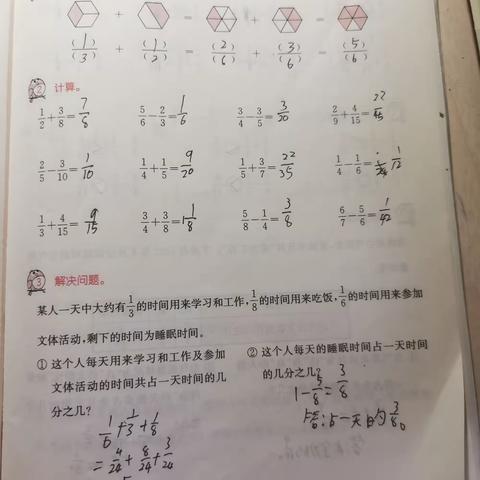 + = + =
(1)/(3) + (1)/(2) = (2)/(6) + (3)/(6) = (5)/(6)
② 计算。
1/2+3/8=7/8 5/6-2/3=1/6 3/4-3/5=3/20 2/9+4/15=22/45
2/5-3/10=1/10 1/4+1/5=9/20 1/5+3/7=22/35 1/4-1/6= 1/12
1/3+4/15=9/15 3/4+3/8=1 1/8 5/8-1/4=3/8 6/7-5/6=1/42
③ 解决问题。
某人一天中大约有1/3的时间用来学习和工作,1/8的时间用来吃饭,1/6的时间用来参加
文体活动,剩下的时间为睡眠时间。
① 这个人每天用来学习和工作及参加
文体活动的时间共占一天时间的几
分之几?
1/6+1/3+1/8
=4/24+8/24+3/24
② 这个人每天的睡眠时间占一天时间
的几分之几?
1-5/8=3/8
答:占一天的3/8。